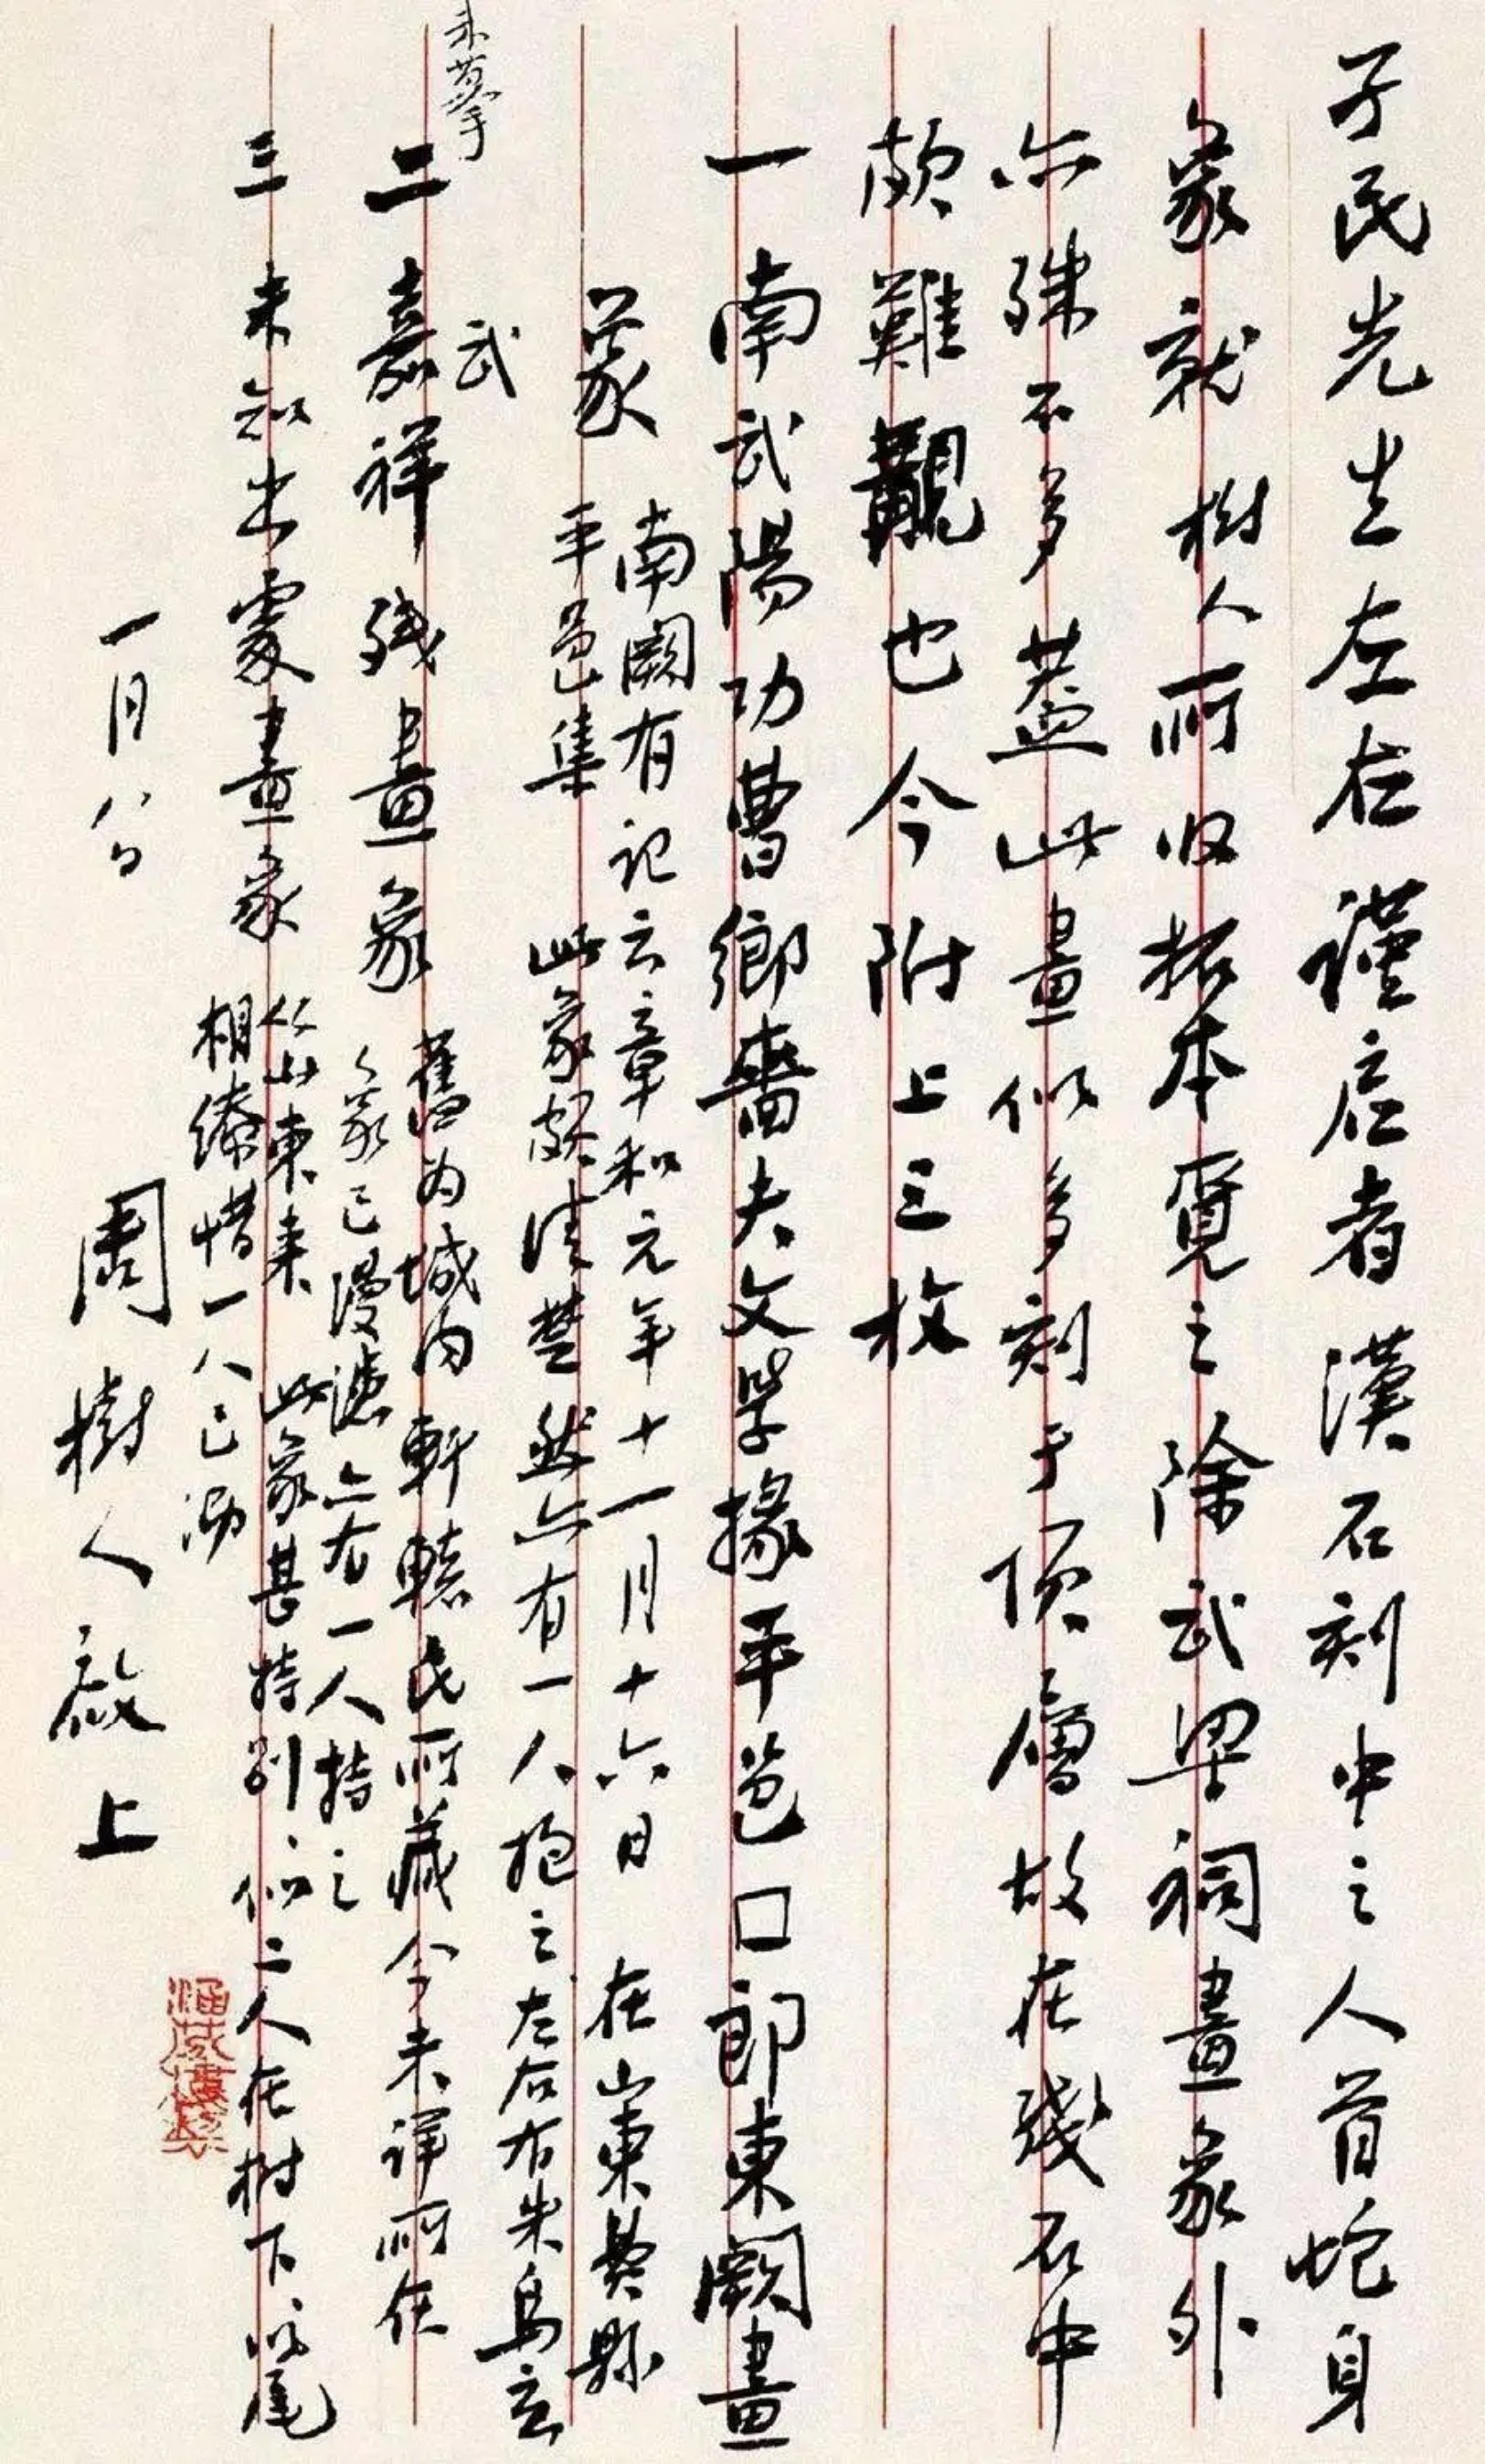 子民先生左右謹启者漢石刻中之人首蛇身
象就樹人所收拓本覓之除武梁祠畫象外
亦殊不多蓋此畫似多刻于頂層故在殘石中
頗難覯也今附上三枚
一南武陽功曹鄉嗇夫文學掾平邑口郎東闕畫
象
南闕有記云章和元年十一月十六日 在山東費縣
平邑集 此象頗清楚然亦有一人抱之左右有朱鳥立
武
未摹
二嘉祥殘畫象
舊為城內軒轅氏所藏今未詳所在
象已漫漶亦有一人持之
三未知出處畫象
從山東來 此象甚特別似二人在樹下以尾
相繚惜一人已泐
一月八日
周樹人啟上